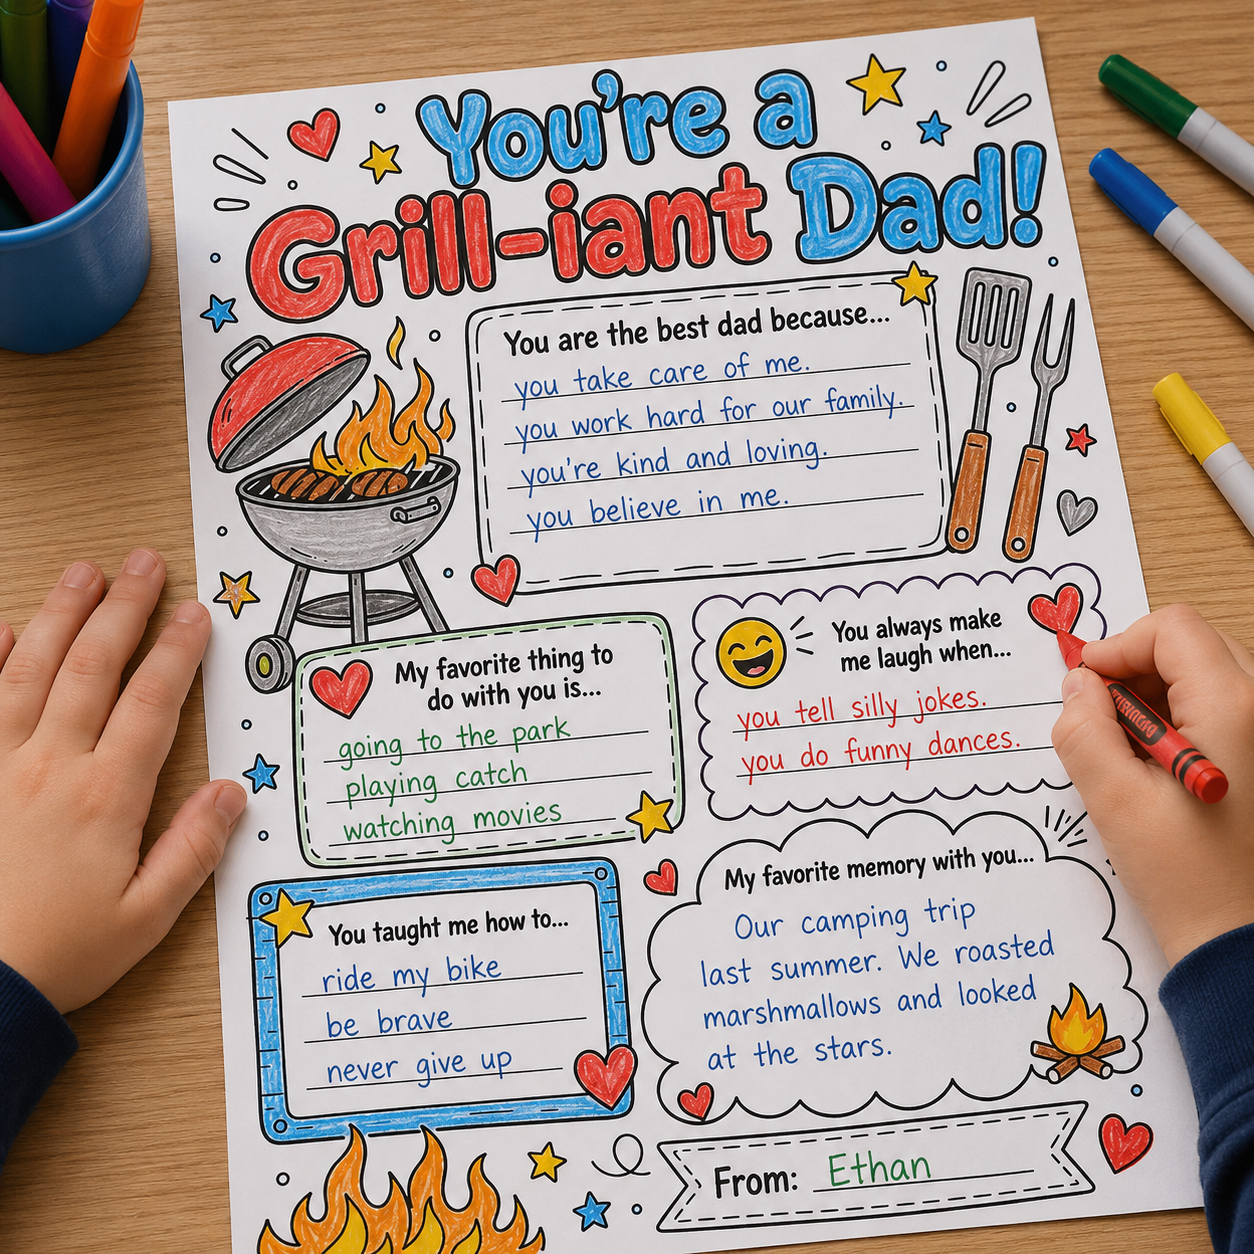 You're a
Grill-iant Dad!
You are the best dad because...
you take care of me.
you work hard for our family.
you're kind and loving.
you believe in me.
My favorite thing to
do with you is...
going to the park
playing catch
watching movies
You always make
me laugh when...
you tell silly jokes.
you do funny dances.
You taught me how to...
ride my bike
be brave
never give up
My favorite memory with you...
Our camping trip
last summer. We roasted
marshmallows and looked
at the stars.
From: Ethan